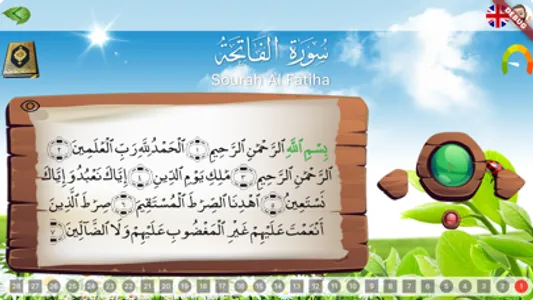 DEBUG
سُورَةُ الفَاتِحَةُ
Sourah Al Fatiha
بِسْمِ ٱللَّهِ ٱلرَّحْمَٰنِ ٱلرَّحِيمِ ١ ٱلْحَمْدُ لِلَّهِ رَبِّ ٱلْعَٰلَمِينَ ٢
ٱلرَّحْمَٰنِ ٱلرَّحِيمِ ٣ مَٰلِكِ يَوْمِ ٱلدِّينِ ٤ إِيَّاكَ نَعْبُدُ وَإِيَّاكَ
نَسْتَعِينُ ٥ ٱهْدِنَا ٱلصِّرَٰطَ ٱلْمُسْتَقِيمَ ٦ صِرَٰطَ ٱلَّذِينَ
أَنْعَمْتَ عَلَيْهِمْ غَيْرِ ٱلْمَغْضُوبِ عَلَيْهِمْ وَلَا ٱلضَّآلِّينَ ٧
28 27 26 25 24 23 22 21 20 19 18 17 16 15 14 13 12 11 10 9 8 7 6 5 4 3 2 1